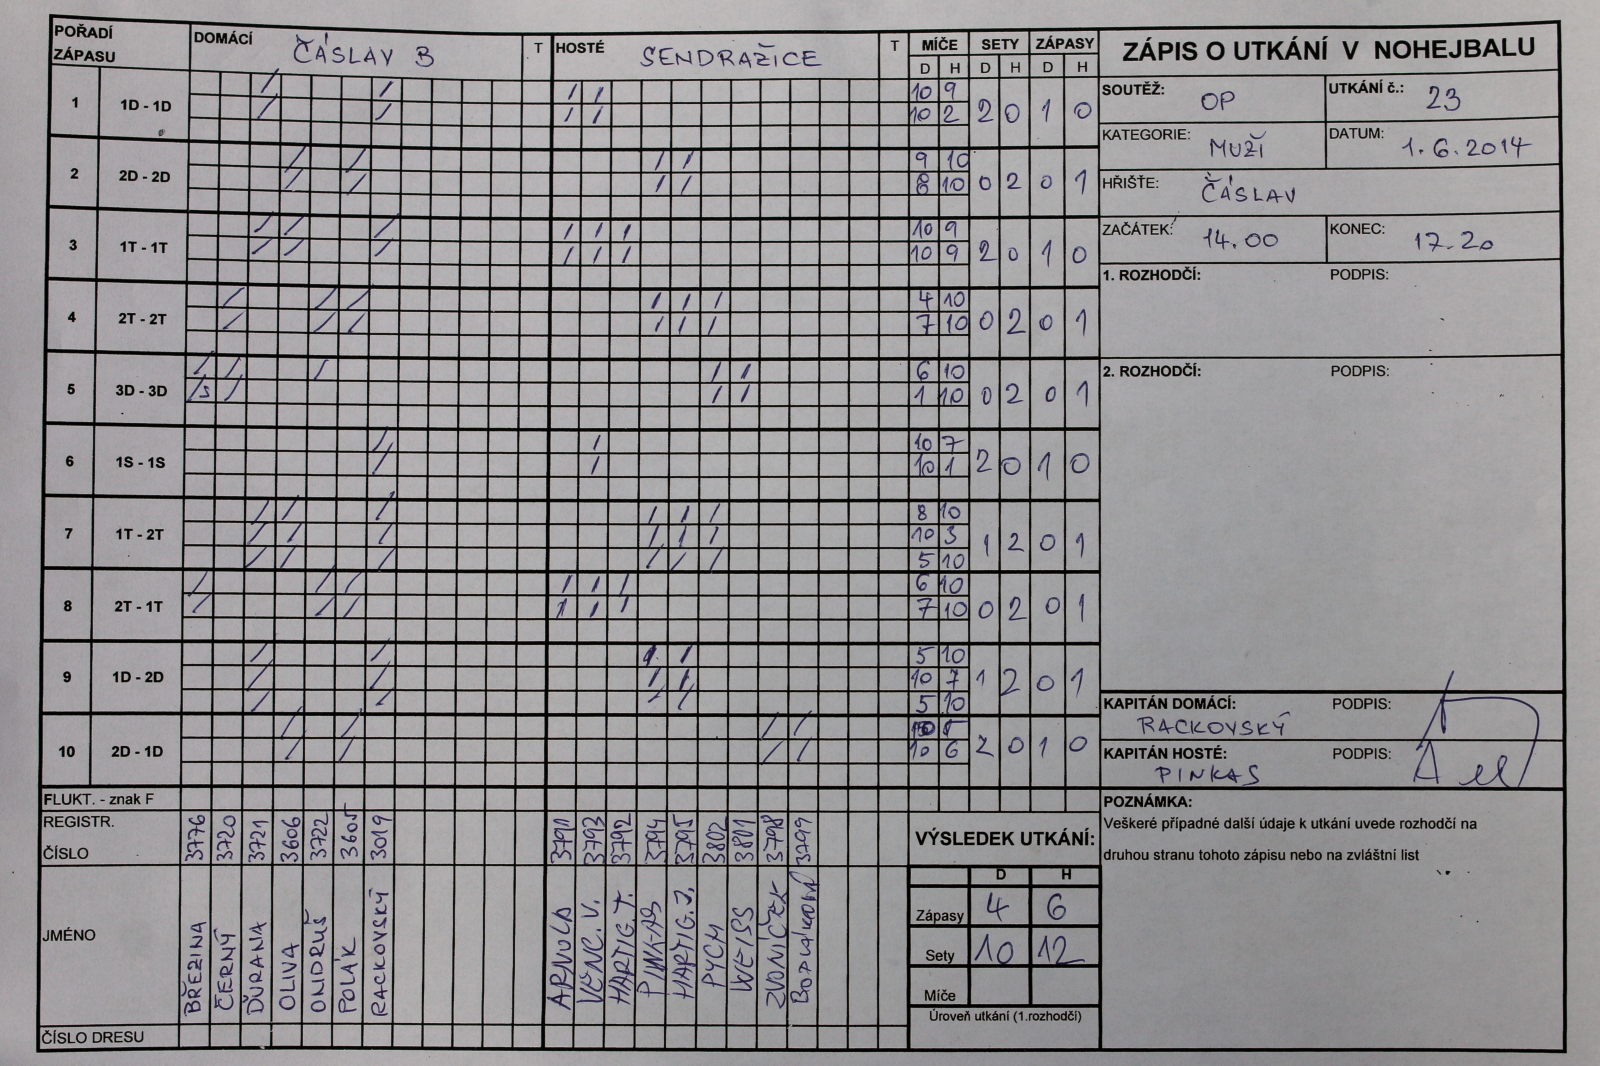 POŘADÍ ZÁPASU DOMÁCÍ ČÁSLAV B T HOSTÉ SENDRAŽICE T MÍČE SETY ZÁPASY
D H D H D H
1 1D - 1D 10 9 2 0 1 0
10 2
2 2D - 2D 9 10 0 2 0 1
8 10
3 1T - 1T 10 9 2 0 1 0
10 9
4 2T - 2T 4 10 0 2 0 1
7 10
5 3D - 3D 6 10 0 2 0 1
1 10
6 1S - 1S 10 7 2 0 1 0
10 1
7 1T - 2T 8 10 1 2 0 1
10 3
5 10
8 2T - 1T 6 10 0 2 0 1
7 10
9 1D - 2D 5 10 1 2 0 1
10 7
5 10
10 2D - 1D 2 0 1 0
10 6
FLUKT. - znak F
REGISTR. ČÍSLO 3776 3720 3721 3606 3722 3605 3019 3793 3792 3794 3795 3802 3801 3798 3799
JMÉNO BŘEZINA ČERNÝ ĎURANA OLIVA ONDRUŠ POLÁK RACKOVSKÝ ARNOLD VENC. V. HARTIG. T. PINKAS HARTIG. J. PYCH WEISS ZVONÍČEK
ČÍSLO DRESU
VÝSLEDEK UTKÁNÍ:
D H
Zápasy 4 6
Sety 10 12
Míče
Úroveň utkání (1.rozhodčí)
ZÁPIS O UTKÁNÍ V NOHEJBALU
SOUTĚŽ: OP UTKÁNÍ č.: 23
KATEGORIE: MUŽI DATUM: 1.6.2014
HŘIŠTĚ: ČÁSLAV
ZAČÁTEK: 14.00 KONEC: 17.20
1. ROZHODČÍ: PODPIS:
2. ROZHODČÍ: PODPIS:
KAPITÁN DOMÁCÍ: PODPIS:
RACKOVSKÝ
KAPITÁN HOSTÉ: PODPIS:
PINKAS
POZNÁMKA:
Veškeré případné další údaje k utkání uvede rozhodčí na
druhou stranu tohoto zápisu nebo na zvláštní list